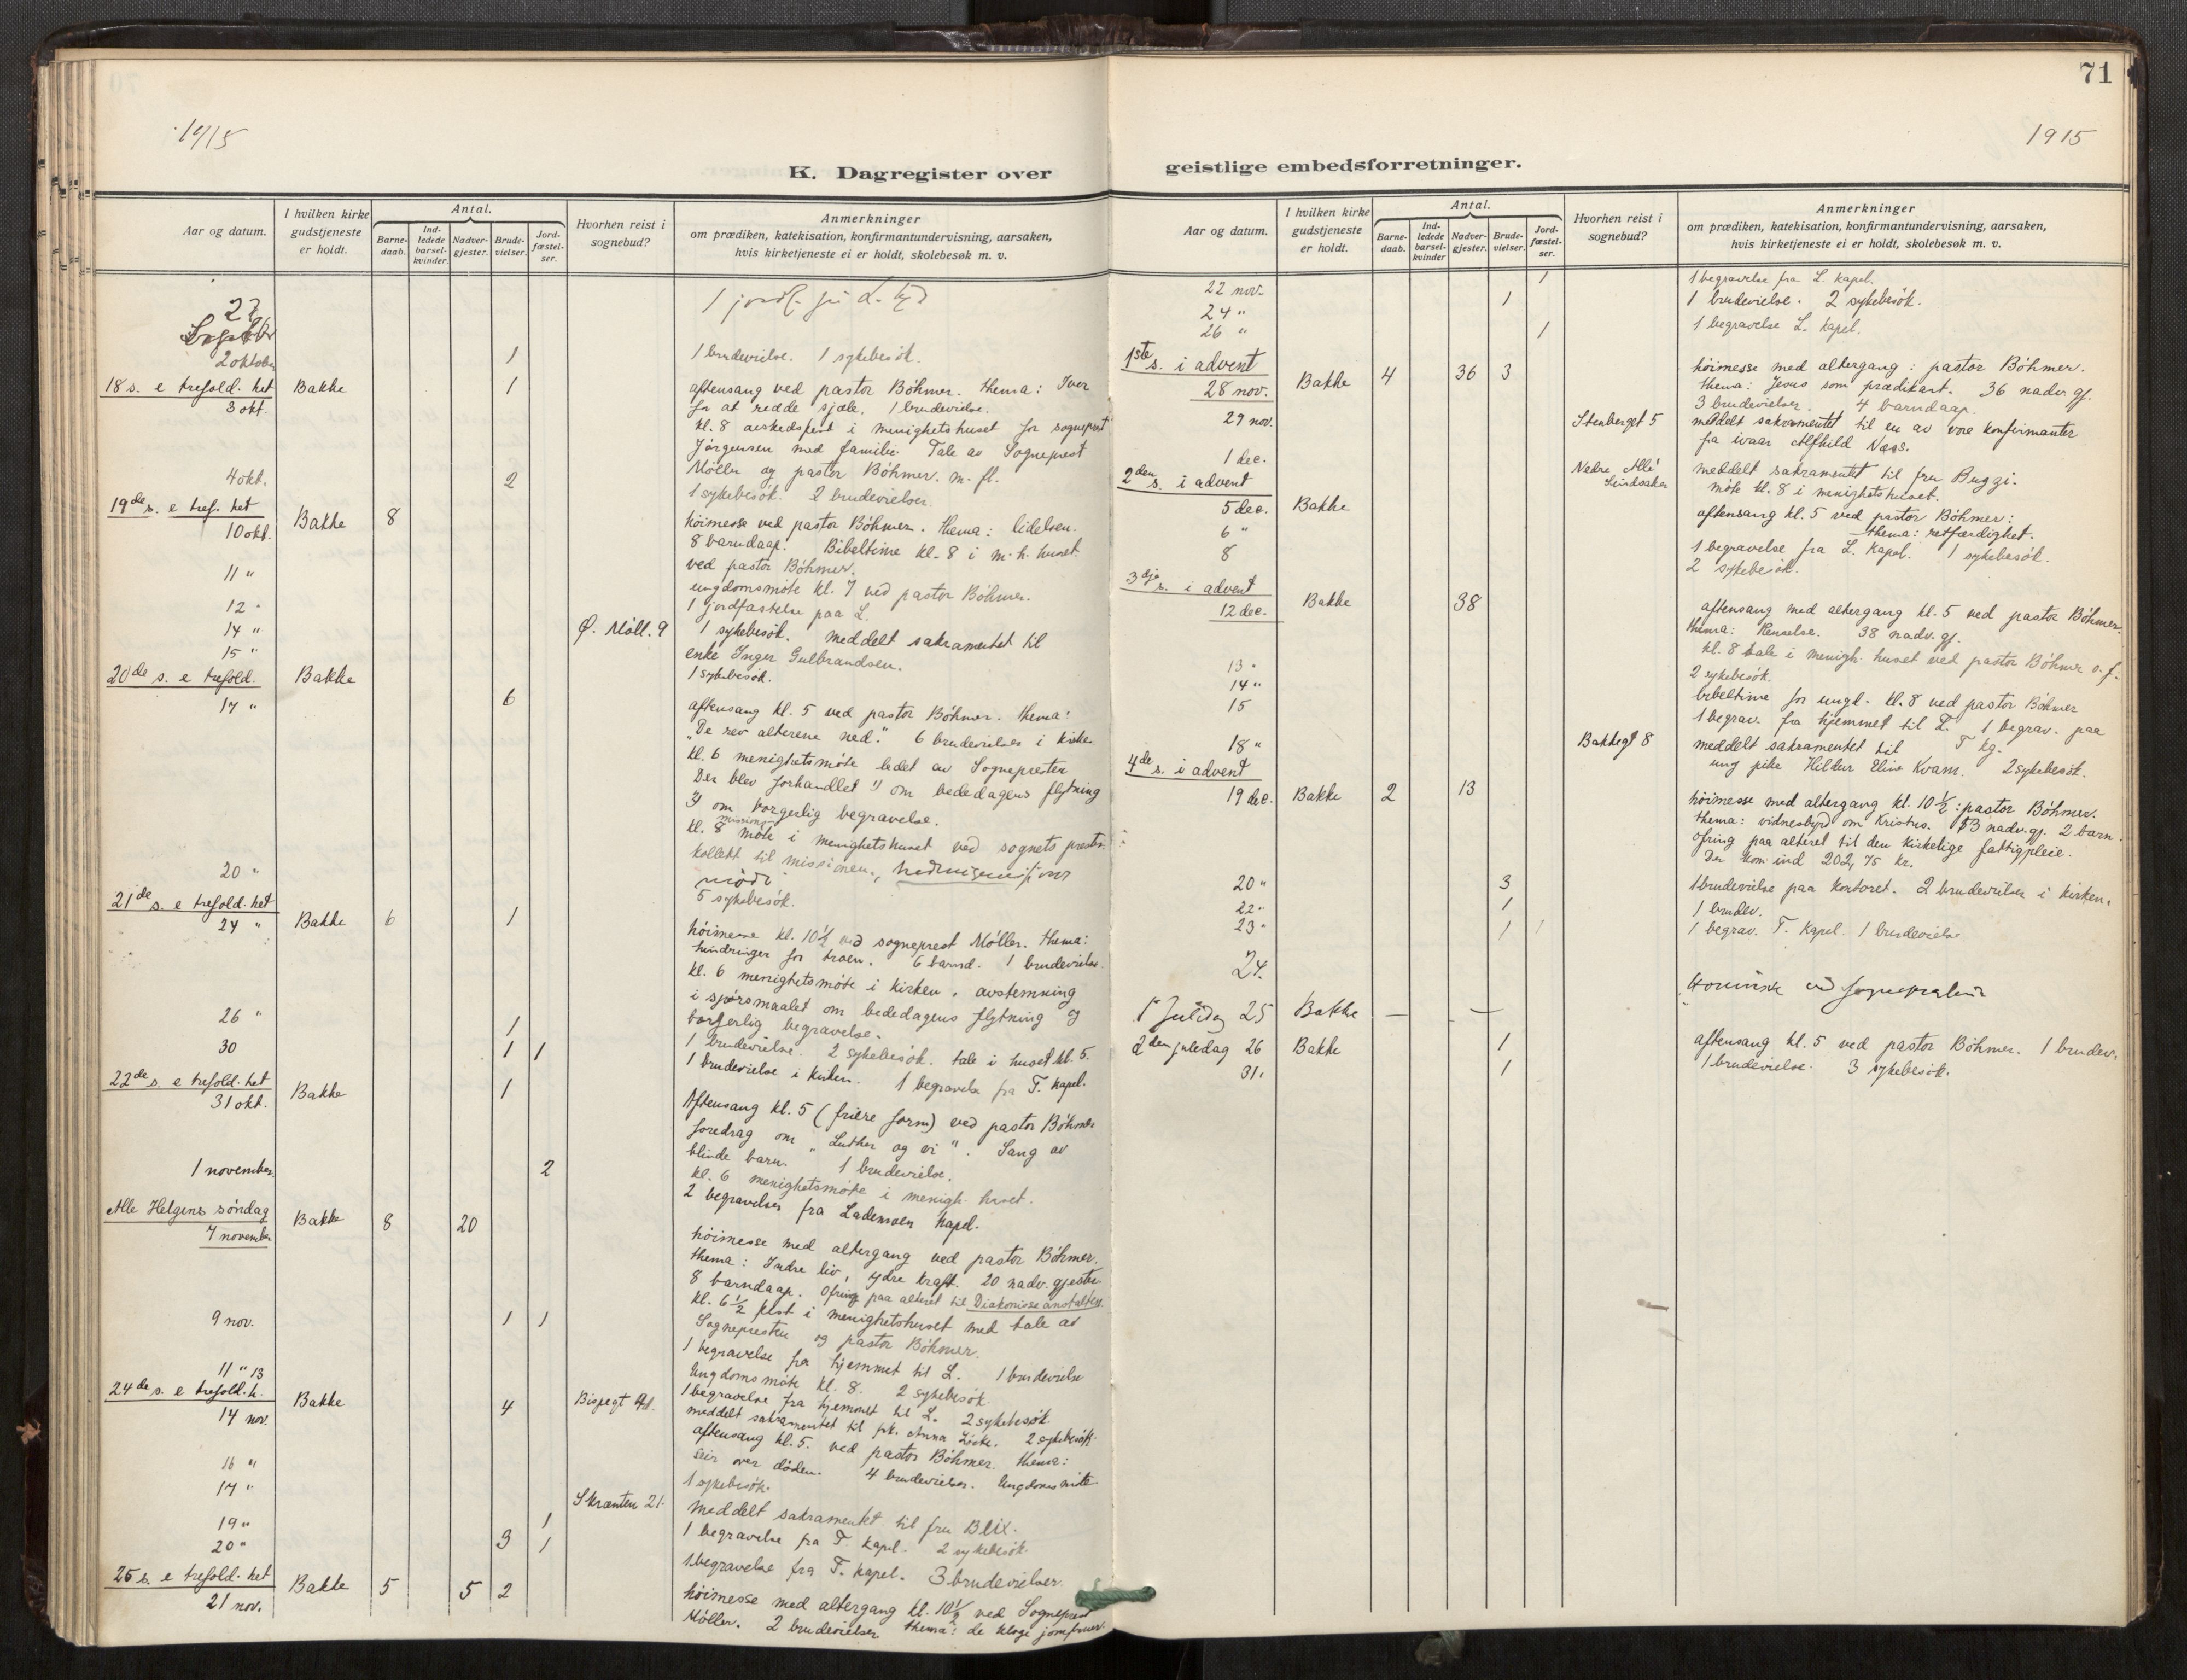 1915
K. Dagregister over
Aar og datum.
I hvilken kirke gudstjeneste er holdt.
Antal.
Barne-daab.
Ind-ledede barsel-kvinder.
Nadver-gjester.
Brude-vielser.
Jord-fæstel-ser.
Hvorhen reist i sognebud?
Anmerkninger
om prædiken, katekisation, konfirmantundervisning, aarsaken,
hvis kirketjeneste ei er holdt, skolebesøk m. v.
27
2 oktober 1 1 brudevielse. 1 sykebesök.
18 s. e trefold. het Bakke 1 aftensang ved pastor Böhmer. thema: Iver
3 okt. for at redde sjæle. 1 brudevielse.
kl. 8 avskedsfest i menighetshuset for sogneprest
Jörgensen med familie. Tale av Sogneprest
Möller og pastor Böhmer. m. fl.
4 okt. 2 1 sykebesök. 2 brudevielser.
19de s. e tref. het
10 okt. Bakke 8 höimesse ved pastor Böhmer. thema: lidelsen.
8 barndaap. Bibeltime kl. 8 i m. h. huset
ved pastor Böhmer.
11 " ungdomsmöte kl. 7 ved pastor Böhmer.
12 " 1 jordfæstelse paa L.
14 " Ø. Möll. 9 1 sykebesök. meddelt sakramentet til
enke Inger Gulbrandsen.
15 " 1 sykebesök.
20de s. e trefold. Bakke
17 " 6 aftensang kl. 5 ved pastor Böhmer. thema:
"De rev alterene ned." 6 brudevielser i kirke
kl. 6 menighetsmöte ledet av Sognepresten
Der blev forhandlet 1) om bededagens flytning
2) om borgerlig begravelse.
kl. 8 missions-möte i menighetshuset ved sognets prester.
kollekt til missionen.
20 " 5 sykebesök.
21de s. e trefold. het
24 " Bakke 6 1 höimesse kl. 10½ ved sogneprest Möller. thema:
hindringer for troen. 6 barnd. 1 brudevielse.
kl. 6 menighetsmöte i kirken. avstemning
i spörsmaalet om bededagens flytning og
borgerlig begravelse.
26 " 1 1 brudevielse. 2 sykebesök. tale i huset kl. 5.
30 1 1 1 brudevielse i kirken. 1 begravelse fra T. kapel.
22de s. e trefold. het
31 okt. Bakke 1 Aftensang kl. 5 (friere form) ved pastor Böhmer
foredrag om "Luther og vi". Sang av
blinde barn. 1 brudevielse.
kl. 6 menighetsmöte i menigh. huset.
1 november 2 2 begravelser fra Lademoen kapel.
Alle Helgens söndag
7 november Bakke 8 20 höimesse med altergang ved pastor Böhmer.
thema: Indre liv, ydre kraft. 20 nadv. gjester
8 barndaap. Ofring paa alteret til Diakonisseanstalten.
kl. 6½ fest i menighetshuset med tale av
Sognepresten og pastor Böhmer.
9 nov. 1 1 1 begravelse fra hjemmet til L. 1 brudevielse
11 " 13 Ungdomsmöte kl. 8. 2 sykebesök
1 begravelse fra hjemmet til L. 2 sykebesök
24de s. e trefold. h. Bakke Bispegt meddelt sakramentet til frk. Anna 2 sykebesök.
14 nov. 4 aftensang kl. 5. ved pastor Böhmer. thema:
seir over döden. 4 brudevielser. Ungdomsmöte.
16 " 1 sykebesök.
17 " Skrænten 21. meddelt sakramentet til fru Blix.
19 " 1 1 begravelse fra T. kapel. 2 sykebesök.
20 " 3 1 1 begravelse fra T. kapel. 3 brudevielser.
25 s. e trefold. het
21 nov. Bakke 5 5 2 höimesse med altergang kl. 10½ ved Sogneprest
Möller. 2 brudevielser thema: de kloge jomfruer.
71
1915
geistlige embedsforretninger.
Aar og datum.
I hvilken kirke gudstjeneste er holdt.
Antal.
Barne-daab.
Ind-ledede barsel-kvinder
Nadver-gjester.
Brude-vielser.
Jord-fæstel-ser.
Hvorhen reist i sognebud?
Anmerkninger
om prædiken, katekisation, konfirmantundervisning, aarsaken,
hvis kirketjeneste ei er holdt, skolebesøk m. v.
22 nov. 1 1 begravelse fra L. kapel.
24 " 1 1 brudevielse. 2 sykebesök.
26 " 1 1 begravelse L. kapel.
1ste s. i advent
28 nov. Bakke 4 36 3 höimesse med altergang: pastor Böhmer.
thema: Jesus som prædikant. 36 nadv. gj.
3 brudevielser. 4 barndaap.
29 nov. Stenberget 5 meddelt sakramentet til en av vore konfirmanter
fra ivaar Alfhild Næss.
1 dec. Nedre Allé meddelt sakramentet til fru Buggi.
møte kl. 8 i menighetshuset.
2den s. i advent
5 dec. Bakke aftensang kl. 5 ved pastor Böhmer:
thema: retfærdighet.
6 " 1 begravelse fra L. kapel. 1 sykebesök.
8 2 sykebesök.
3dje s. i advent
12 dec. Bakke 38 aftensang med altergang kl. 5 ved pastor Böhmer.
thema: Renselse. 38 nadv. gj.
kl. 8 tale i menigh. huset ved pastor Böhmer o. f.
13 " 2 sykebesök.
14 " bibeltime for ungd. kl. 8 ved pastor Böhmer
15 1 begrav. fra hjemmet til L. 1 begrav. paa
T kg.
18 " Bakkegt 8 meddelt sakramentet til
ung pike Hildur Eline Kvam. 2 sykebesök.
4de s. i advent
19 dec. Bakke 2 13 höimesse med altergang kl. 10½: pastor Böhmer.
thema: vidnesbyrd om Kristus. 13 nadv. gj. 2 barn.
Ofring paa alteret til den kirkelige fattigpleie.
Der kom ind 202,75 kr.
20 " 3 1 brudevielse paa kontoret. 2 brudevielser i kirken.
22 " 1 1 brudev.
23 " 1 1 1 begrav. T. kapel. 1 brudevielse
24.
1 Juledag 25 Bakke — — ved sognepresten
2den juledag 26 Bakke 1 aftensang kl. 5 ved pastor Böhmer. 1 brudev.
31. 1 1 brudevielse. 3 sykebesök.